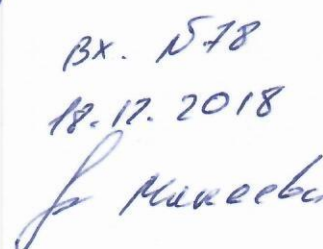 Вх. №78
18.12.2018
Макеева